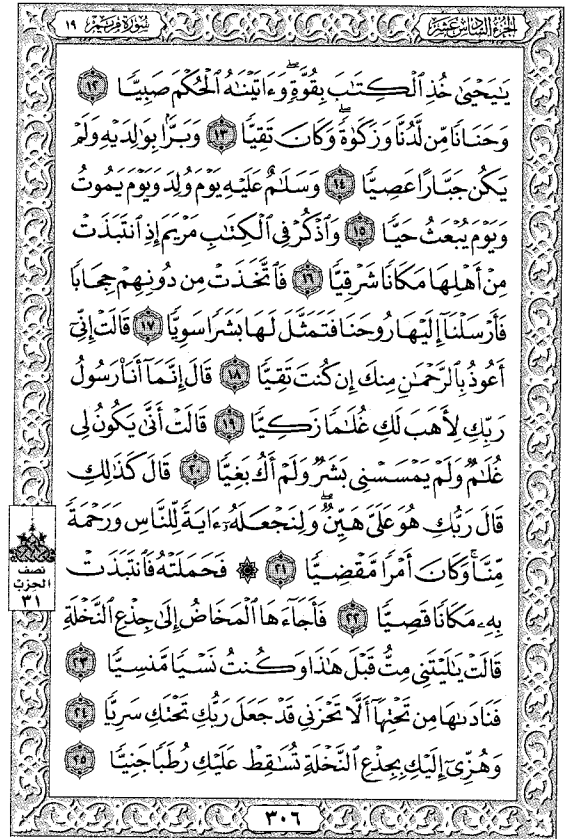 الجزء السادس عشر
سورة مريم ١٩
يَٰيَحْيَىٰ خُذِ ٱلْكِتَٰبَ بِقُوَّةٍۖ وَءَاتَيْنَٰهُ ٱلْحُكْمَ صَبِيًّا ١٢
وَحَنَانًا مِّن لَّدُنَّا وَزَكَوٰةًۖ وَكَانَ تَقِيًّا ١٣ وَبَرًّۢا بِوَٰلِدَيْهِ وَلَمْ
يَكُن جَبَّارًا عَصِيًّا ١٤ وَسَلَٰمٌ عَلَيْهِ يَوْمَ وُلِدَ وَيَوْمَ يَمُوتُ
وَيَوْمَ يُبْعَثُ حَيًّا ١٥ وَٱذْكُرْ فِى ٱلْكِتَٰبِ مَرْيَمَ إِذِ ٱنتَبَذَتْ
مِنْ أَهْلِهَا مَكَانًا شَرْقِيًّا ١٦ فَٱتَّخَذَتْ مِن دُونِهِمْ حِجَابًا
فَأَرْسَلْنَآ إِلَيْهَا رُوحَنَا فَتَمَثَّلَ لَهَا بَشَرًا سَوِيًّا ١٧ قَالَتْ إِنِّىٓ
أَعُوذُ بِٱلرَّحْمَٰنِ مِنكَ إِن كُنتَ تَقِيًّا ١٨ قَالَ إِنَّمَآ أَنَا۠ رَسُولُ
رَبِّكِ لِأَهَبَ لَكِ غُلَٰمًا زَكِيًّا ١٩ قَالَتْ أَنَّىٰ يَكُونُ لِى
غُلَٰمٌ وَلَمْ يَمْسَسْنِى بَشَرٌ وَلَمْ أَكُ بَغِيًّا ٢٠ قَالَ كَذَٰلِكِ
قَالَ رَبُّكِ هُوَ عَلَىَّ هَيِّنٌۖ وَلِنَجْعَلَهُۥٓ ءَايَةً لِّلنَّاسِ وَرَحْمَةً
مِّنَّاۚ وَكَانَ أَمْرًا مَّقْضِيًّا ٢١ ۞ فَحَمَلَتْهُ فَٱنتَبَذَتْ
بِهِۦ مَكَانًا قَصِيًّا ٢٢ فَأَجَآءَهَا ٱلْمَخَاضُ إِلَىٰ جِذْعِ ٱلنَّخْلَةِ
قَالَتْ يَٰلَيْتَنِى مِتُّ قَبْلَ هَٰذَا وَكُنتُ نَسْيًا مَّنسِيًّا ٢٣
فَنَادَىٰهَا مِن تَحْتِهَآ أَلَّا تَحْزَنِى قَدْ جَعَلَ رَبُّكِ تَحْتَكِ سَرِيًّا ٢٤
وَهُزِّىٓ إِلَيْكِ بِجِذْعِ ٱلنَّخْلَةِ تُسَٰقِطْ عَلَيْكِ رُطَبًا جَنِيًّا ٢٥
نصف
الحزب
٣١
٣٠٦